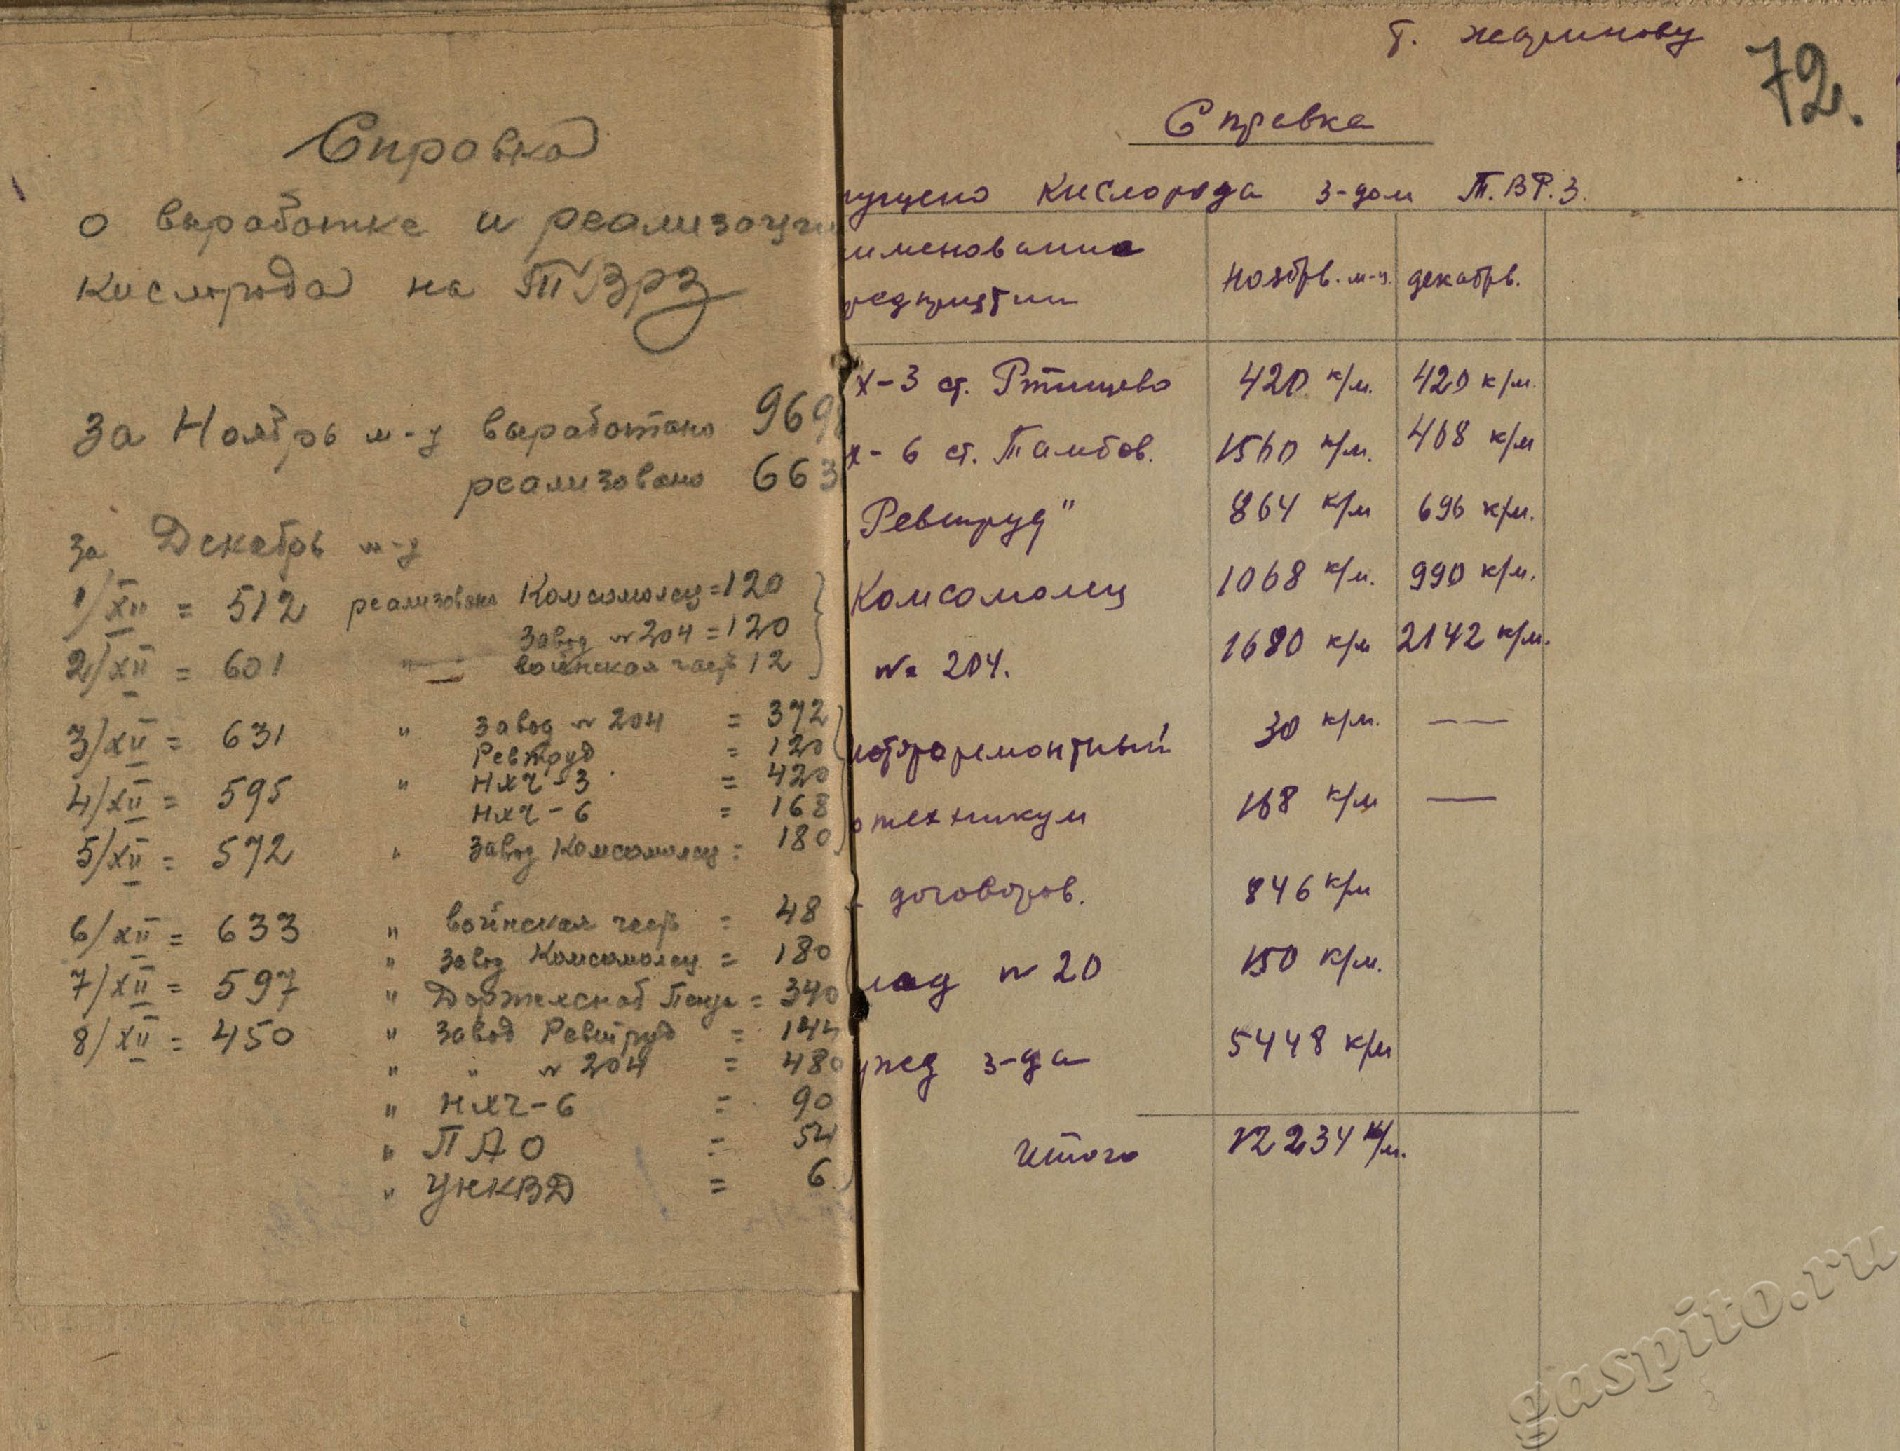 Справка
о выработке и реализаци
кислорода на ТВРЗ
За Ноябрь м-ц выработано 969
реализовано 663
за Декабрь м-ц
1/XII = 512 реализовано Комсомолец = 120
Завод № 204 = 120
2/XII = 601 " — воинская часть 12
3/XII = 631 " Завод № 204 = 372
Ревтруд = 120
4/XII = 595 " НХЧ-3 = 420
НХЧ-6 = 168
5/XII = 572 " Завод Комсомолец = 180
6/XII = 633 " воинская часть = 48
" Завод Комсомолец = 180
7/XII = 597 " Доржелснаб Пенза = 340
8/XII = 450 " Завод Ревтруд = 144
" " № 204 = 480
" НХЧ-6 = 90
" ПАО = 54
" УНКВД = 6
т. Жаринову
72.
Справка
пущено кислорода з-дом Т.ВР.З.
именование
редприятии
ноябрь. м-ц. декабрь.
х-3 ст. Ртищево 420 к/м. 420 к/м.
х-6 ст. Тамбов. 1560 к/м. 468 к/м
„Ревтруд" 864 к/м 696 к/м.
Комсомолец 1068 к/м. 990 к/м.
№ 204. 1680 к/м 2142 к/м.
оторемонтный 30 к/м. —
отехникум 168 к/м —
договоров. 846 к/м
лад № 20 150 к/м.
ужд з-да 5448 к/м
Итого 12234 к/м.
gaspito.ru